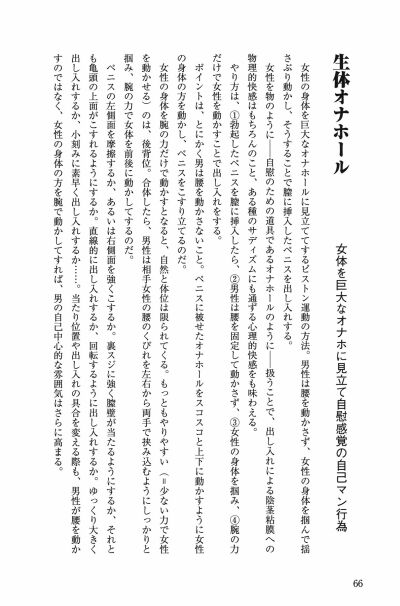 生体オナホール
女体を巨大なオナホに見立て自慰感覚の自己マン行為
女性の身体を巨大なオナホールに見立ててするピストン運動の方法。男性は腰を動かさず、女性の身体を掴んで揺
さぶり動かし、そうすることで膣に挿入したペニスを出し入れする。
女性を物のように――自慰のための道具であるオナホールのように――扱うことで、出し入れによる陰茎粘膜への
物理的快感はもちろんのこと、ある種のサディズムにも通ずる心理的快感をも味わえる。
やり方は、①勃起したペニスを膣に挿入したら、②男性は腰を固定して動かさず、③女性の身体を掴み、④腕の力
だけで女性を動かすことで出し入れをする。
ポイントは、とにかく男は腰を動かさないこと。ペニスに被せたオナホールをスコスコと上下に動かすように女性
の身体の方を動かし、ペニスをこすり立てるのだ。
女性の身体を腕の力だけで動かすとなると、自然と体位は限られてくる。もっともやりやすい（＝少ない力で女性
を動かせる）のは、後背位。合体したら、男性は相手女性の腰のくびれを左右から両手で挟み込むようにしっかりと
掴み、腕の力で女体を前後に動かしてするのだ。
ペニスの左側面を摩擦するか、あるいは右側面を強くこするか。裏スジに強く膣壁が当たるようにするか、それと
も亀頭の上面がこすれるようにするか。直線的に出し入れするか、回転するように出し入れするか。ゆっくり大きく
出し入れするか、小刻みに素早く出し入れするか……。当たり位置や出し入れの具合を変える際も、男性が腰を動か
すのではなく、女性の身体の方を腕で動かしてすれば、男の自己中心的な雰囲気はさらに高まる。
66